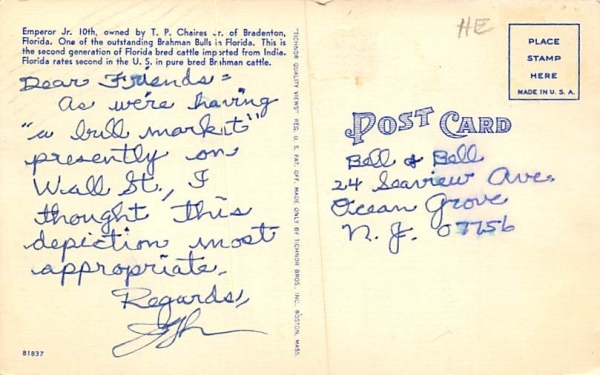 Emperor Jr. 10th, owned by T. P. Chaires Jr. of Bradenton,
Florida. One of the outstanding Brahman Bulls in Florida. This is
the second generation of Florida bred cattle imported from India.
Florida rates second in the U. S. in pure bred Brahman cattle.
Dear Friends=
As we're having
"a bull market"
presently on
Wall St., I
thought this
depiction most
appropriate.
Regards,
81837
"TICHNOR QUALITY VIEWS" REG. U. S. PAT. OFF. MADE ONLY BY TICHNOR BROS., INC., BOSTON, MASS.
HE
PLACE
STAMP
HERE
MADE IN U. S. A.
POST CARD
Bell & Bell
24 Seaview Ave.
Ocean Grove
N. J. 07756